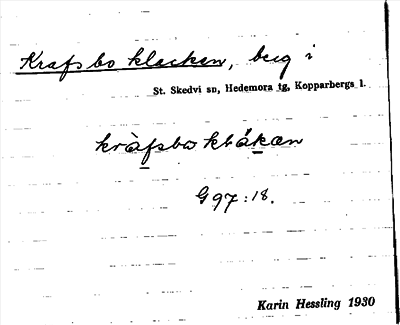 Krafsbo klacken, berg i
St. Skedvi sn, Hedemora tg, Kopparbergs l.
kràfsbo klákæn
G 97:18.
Karin Hessling 1930